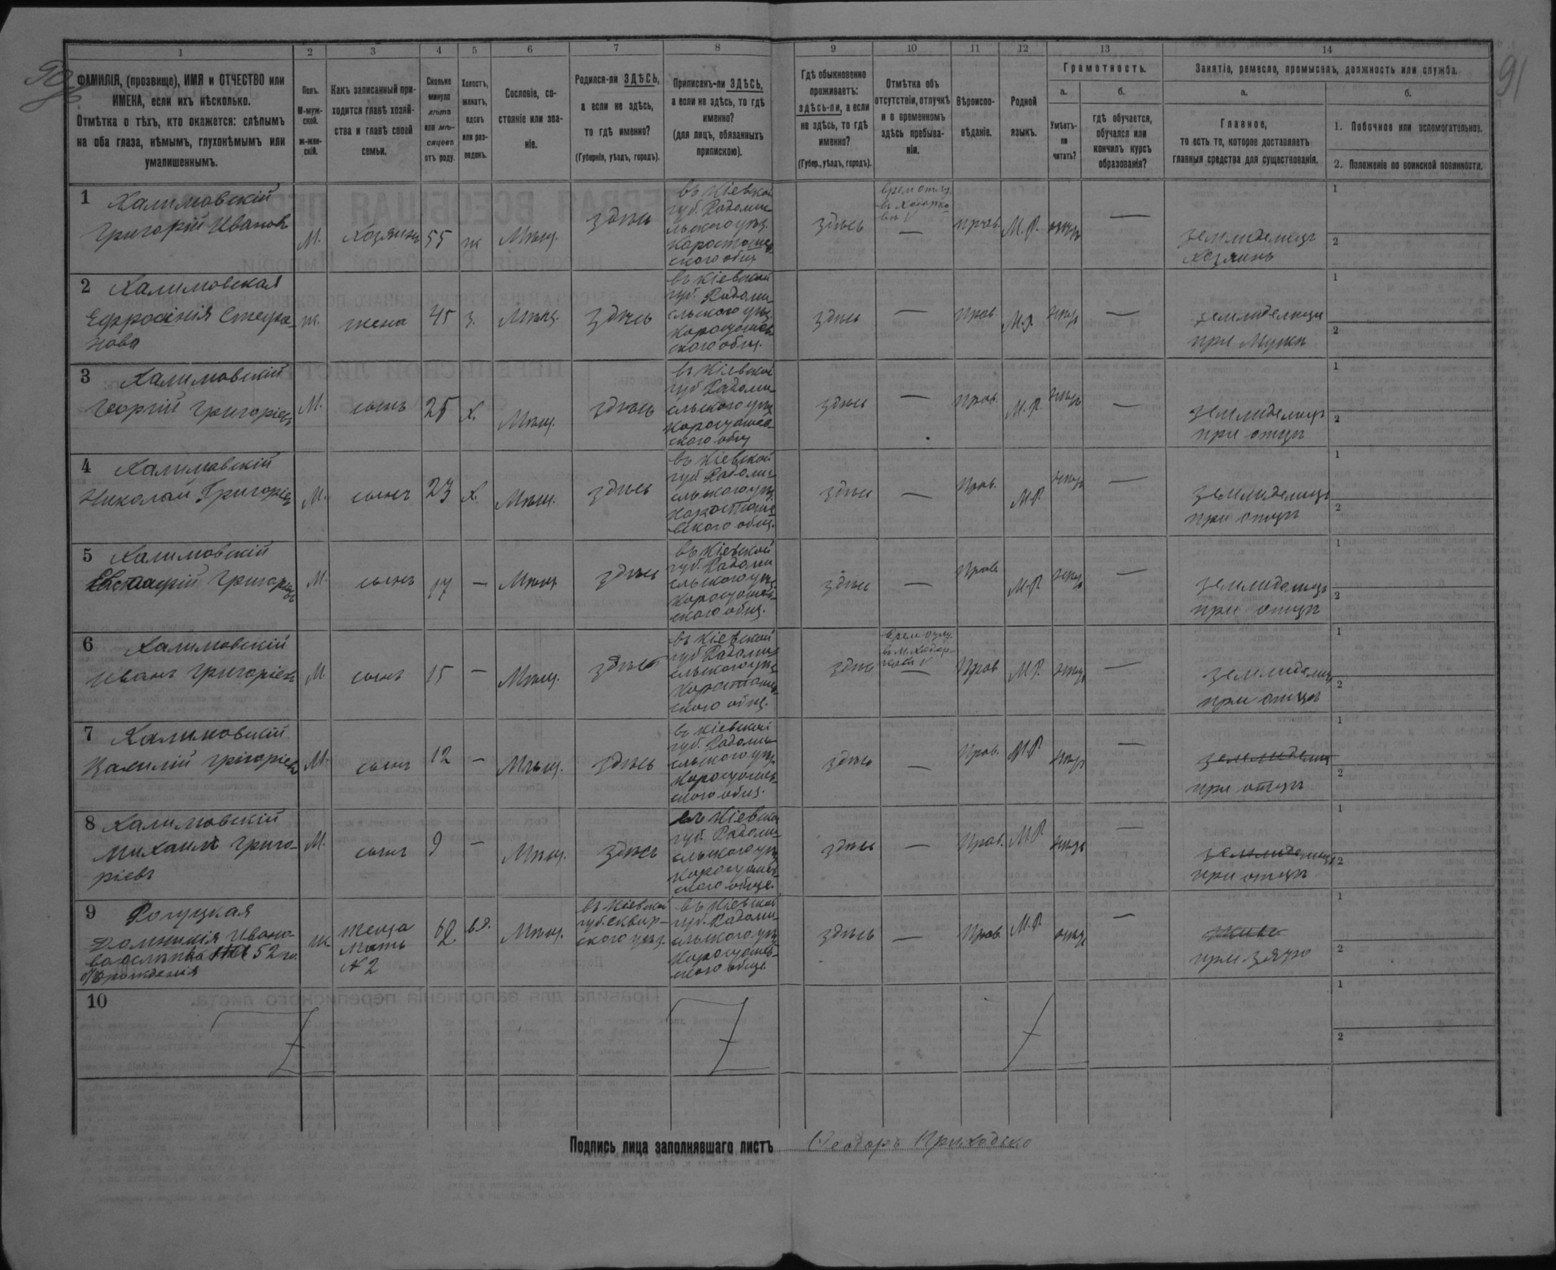 1 2 3 4 5 6 7 8 9 10 11 12 13 14
91
ФАМИЛІЯ, (прозвище), ИМЯ и ОТЧЕСТВО или
ИМЕНА, если ихъ нѣсколько.
Отмѣтка о тѣхъ, кто окажется: слѣпымъ
на оба глаза, нѣмымъ, глухонѣмымъ или
умалишеннымъ.
Полъ.
М-муж-
ской.
ж-жен-
скій.
Какъ записанный при-
ходится главѣ хозяй-
ства и главѣ своей
семьи.
Сколько
минуло
лѣтъ
или мѣ-
сяцевъ
отъ роду.
Холостъ,
женатъ,
вдовъ
или раз-
веденъ.
Сословіе, со-
стояніе или зва-
ніе.
Родился-ли ЗДѢСЬ,
а если не здѣсь,
то гдѣ именно?
(Губернія, уѣздъ, городъ).
Приписанъ-ли ЗДѢСЬ,
а если не здѣсь, то гдѣ
именно?
(для лицъ, обязанныхъ
припискою).
Гдѣ обыкновенно
проживаетъ:
здѣсь-ли, а если
не здѣсь, то гдѣ
именно?
(Губер., уѣздъ, городъ).
Отмѣтка объ
отсутствіи, отлучкѣ
и о временномъ
здѣсь пребыва-
ніи.
Вѣроиспо-
вѣданіе.
Родной
языкъ.
Грамотность.
а.
Умѣетъ-
ли
читать?
б.
гдѣ обучается,
обучался или
кончилъ курсъ
образованія?
Занятіе, ремесло, промыселъ, должность или служба.
а.
Главное,
то есть то, которое доставляетъ
главныя средства для существованія.
б.
1. Побочное или вспомогательное.
2. Положеніе по воинской повинности.
1 Халимовскій
Григорій Иванов
М. хозяинъ 55 ж Мѣщ. здѣсь
въ Кіевской
губ. Радоми-
сльского уѣз.
Коростышев-
ского общ.
здѣсь — прав. М.Р. —
земледѣлецъ
хозяинъ
1
2
2 Халимовская
Ефросинія Степа-
нова
ж. жена 45 з. Мѣщ. здѣсь
въ Кіевской
губ. Радоми-
сльского уѣз.
Коростышев-
ского общ.
здѣсь — прав. М.Р. —
при мужѣ
1
2
3 Халимовскій
Георгій Григоріев
М. сынъ 25 х. Мѣщ. здѣсь
въ Кіевской
губ. Радоми-
сльского уѣз.
Коростышев-
ского общ.
здѣсь — прав. М.Р. —
земледѣлецъ
при отцѣ
1
2
4 Халимовскій
Николай Григоріев
М. сынъ 23 х Мѣщ. здѣсь
въ Кіевской
губ. Радоми-
сльского уѣз.
Коростыше-
вского общ.
здѣсь — прав. М.Р. —
земледѣлецъ
при отцѣ
1
2
5 Халимовскій
Григоріев
М. сынъ — Мѣщ здѣсь
въ Кіевской
губ. Радоми-
сльского уѣз.
Коростышев-
ского общ.
здѣсь — прав. М.Р. —
земледѣлецъ
при отцѣ
1
2
6 Халимовскій
Иванъ Григоріев
М. сынъ 15 — Мѣщ. здѣсь
въ Кіевской
губ. Радоми-
сльского уѣз.
Коростышев-
ского общ.
здѣсь — прав. М.Р. —
земледѣлец
при отцѣ
1
2
7 Халимовскій
Василій Григоріев
М. сынъ 12 — Мѣщ. здѣсь
въ Кіевской
губ. Радоми-
сльского уѣз.
Коростышев-
ского общ.
здѣсь — прав. М.Р. —
земледѣлец
при отцѣ
1
2
8 Халимовскій
Михаилъ Григо-
ріевъ
М. сынъ 9 — Мѣщ. здѣсь
въ Кіевской
губ. Радоми-
сльского уѣз.
Коростышев-
ского обще.
здѣсь — прав. М.Р. —
земледѣлецъ
при отцѣ
1
2
9 Рогуцкая
Ивано-
ва
ж теща
мать
№ 2
62 вд. Мѣщ.
въ Кіевской
губ. Сквир-
ского уѣзд.
въ Кіевской
губ. Радоми-
сльского уѣз.
Коростышев-
ского обще.
здѣсь — прав. М.Р. —
при зятю
1
2
10
1
2
Подпись лица заполнявшаго листъ Ѳеодоръ Приходько